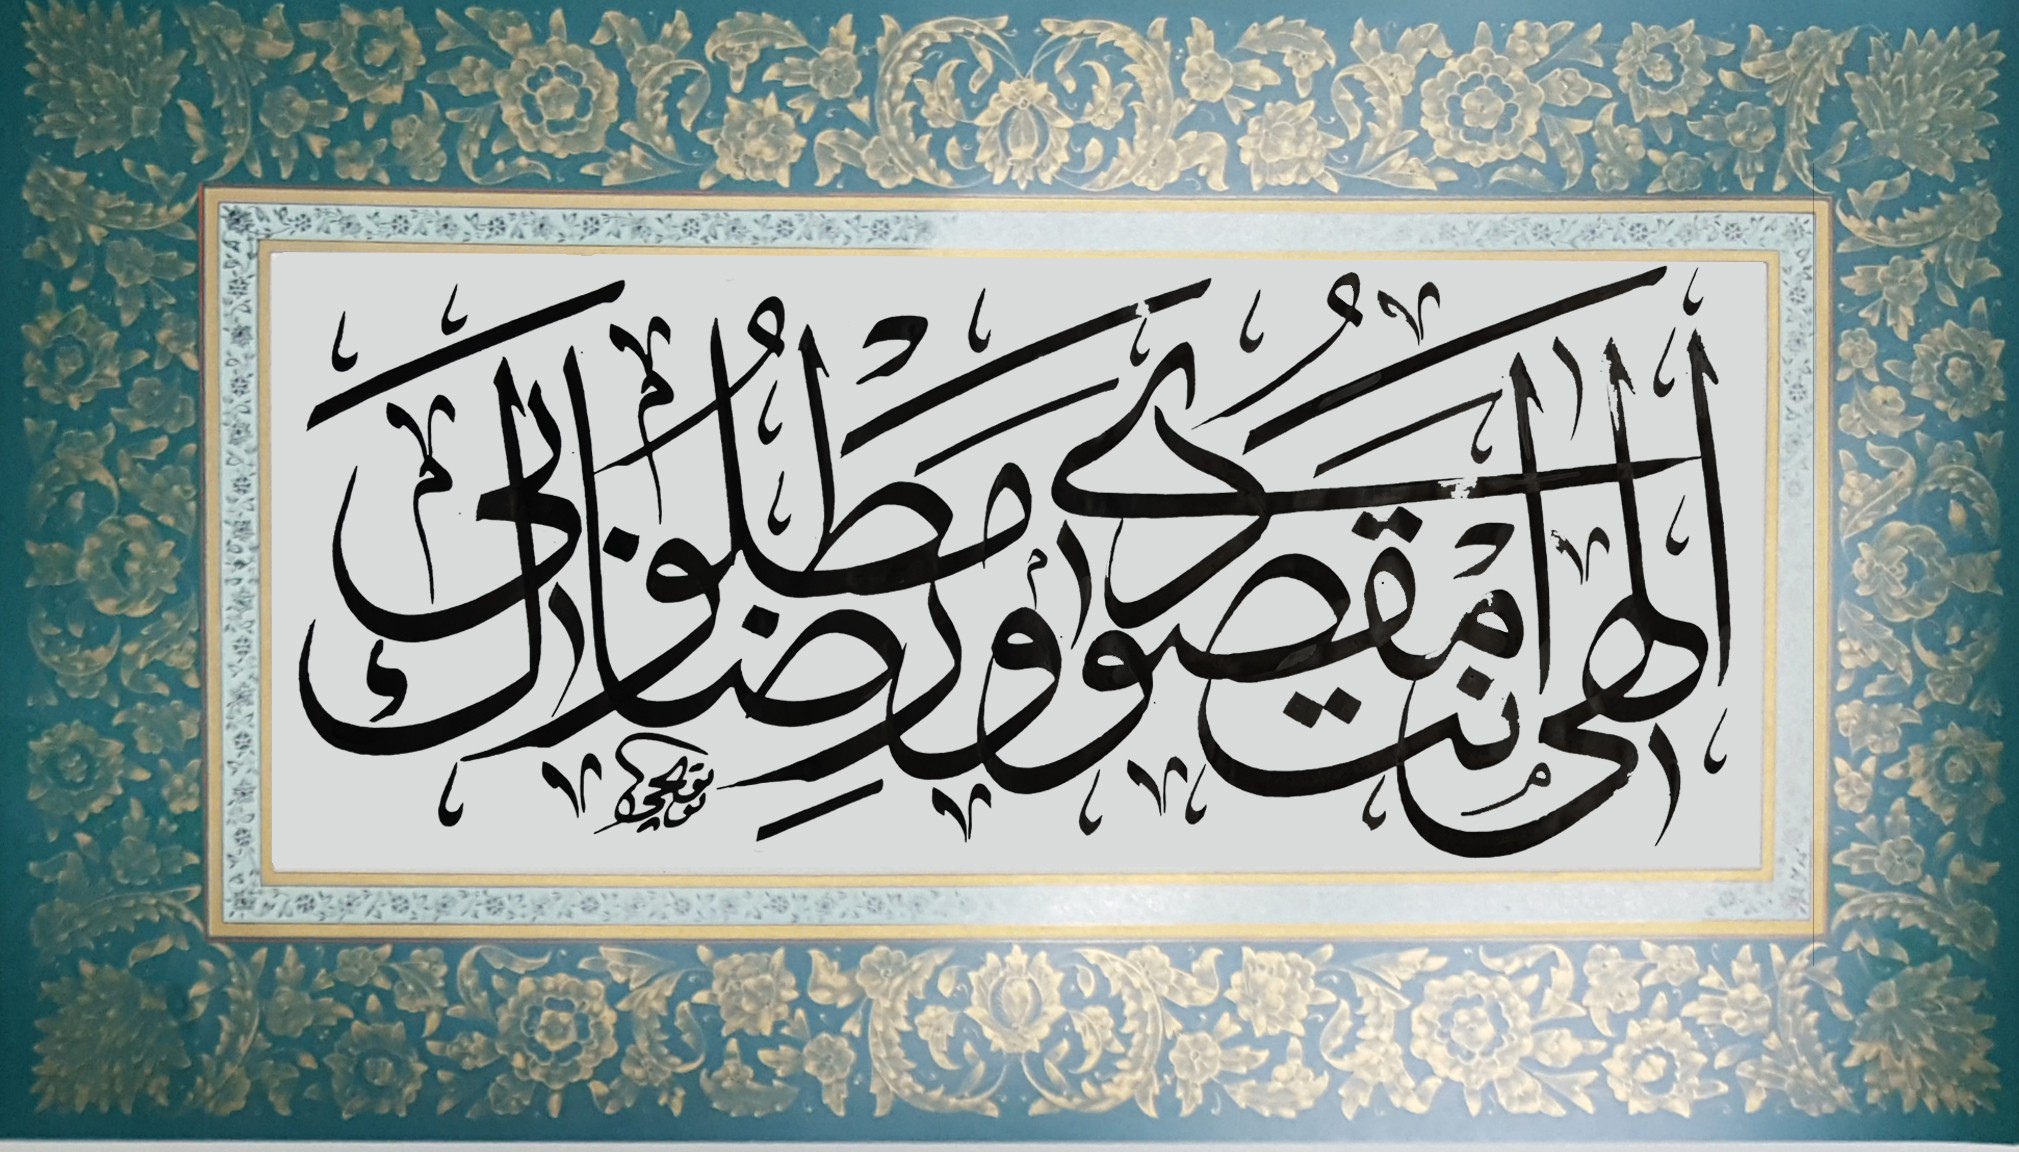 الهى انت مقصودى ورضاك مطلوبى